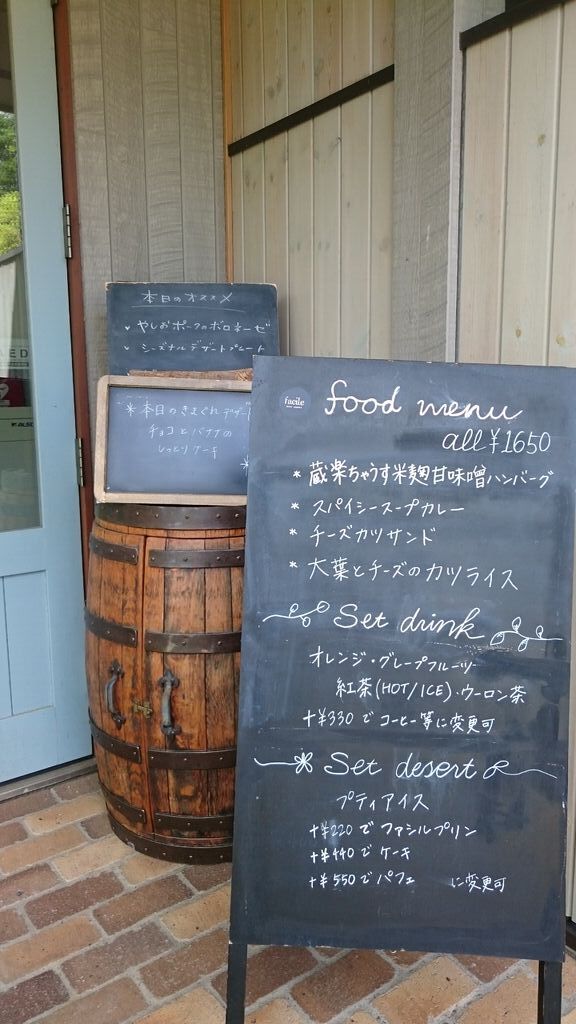 本日のオススメ
やしおポークのボロネーゼ
シーズナルデザートプレート
*本日のきまぐれデザート
チョコとバナナの
しっとりケーキ
facile
food menu
all ¥1650
* 蔵楽ちゃうす米麹甘味噌ハンバーグ
* スパイシースープカレー
* チーズカツサンド
* 大葉とチーズのカツライス
Set drink
オレンジ・グレープフルーツ
紅茶(HOT/ICE)・ウーロン茶
+¥330で コーヒー等に変更可
Set desert
プティアイス
+¥220で ファシルプリン
+¥440で ケーキ
+¥550で パフェ に変更可